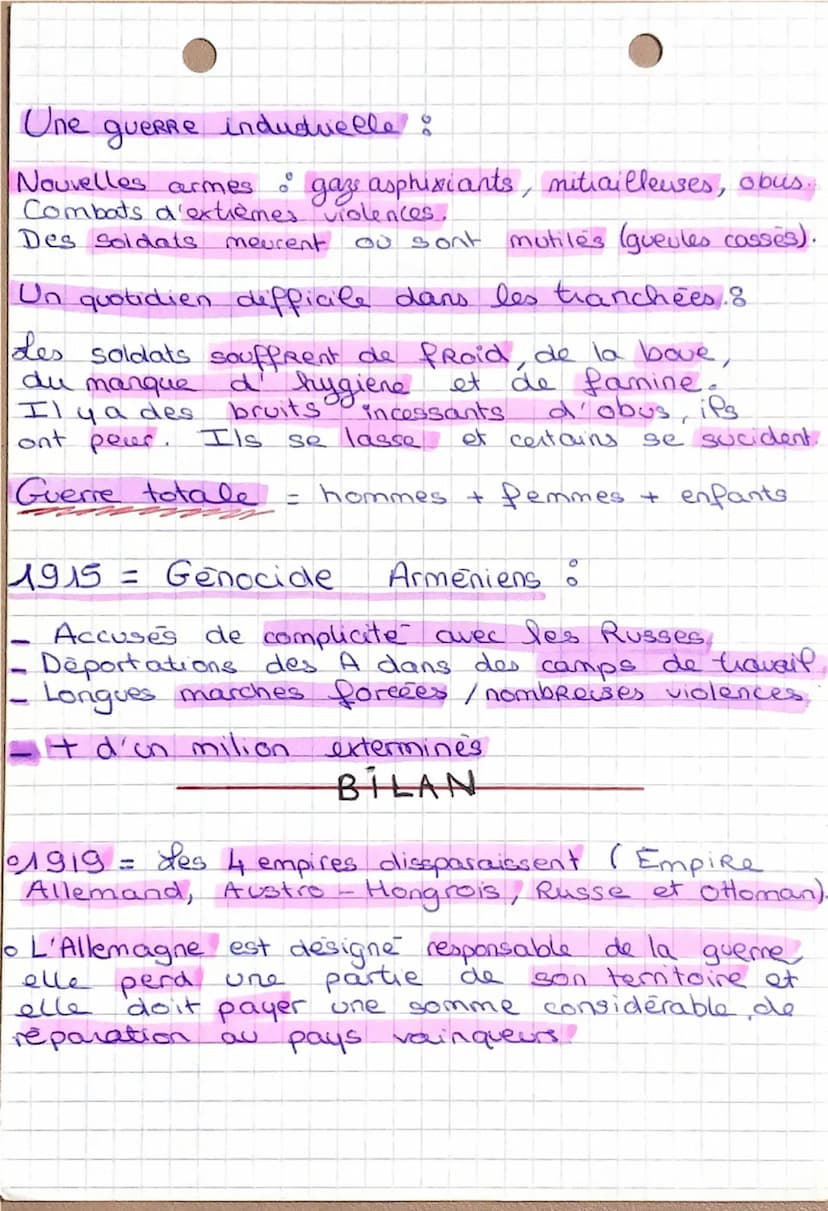 Une guerre industrielle :
Nouvelles armes : gazs asphixiants, mitrailleuses, obus.
Combats d'extrêmes violences.
Des soldats meurent où sont mutilés (gueules cassés).
Un quotidien difficile dans les tranchées. :
Les soldats souffrent de froid, de la boue,
du manque d'hygiène et de famine.
Il y a des bruits incessants d'obus, ils
ont peur. Ils se lasse et certains se sucident.
Guerre totale = hommes + femmes + enfants
1915 = Génocide Arméniens :
- Accusés de complicité avec les Russes,
- Déportations des A dans des camps de travail
- Longues marches forcées / nombreuses violences,
- + d'un milion exterminés
BILAN
o 1919 = Les 4 empires dissparaissent (Empire
Allemand, Austro-Hongrois, Russe et Ottoman).
o L'Allemagne est désigné responsable de la guerre,
elle perd une partie de son territoire et
elle doit payer une somme considérable de
réparation au pays vainqueurs.